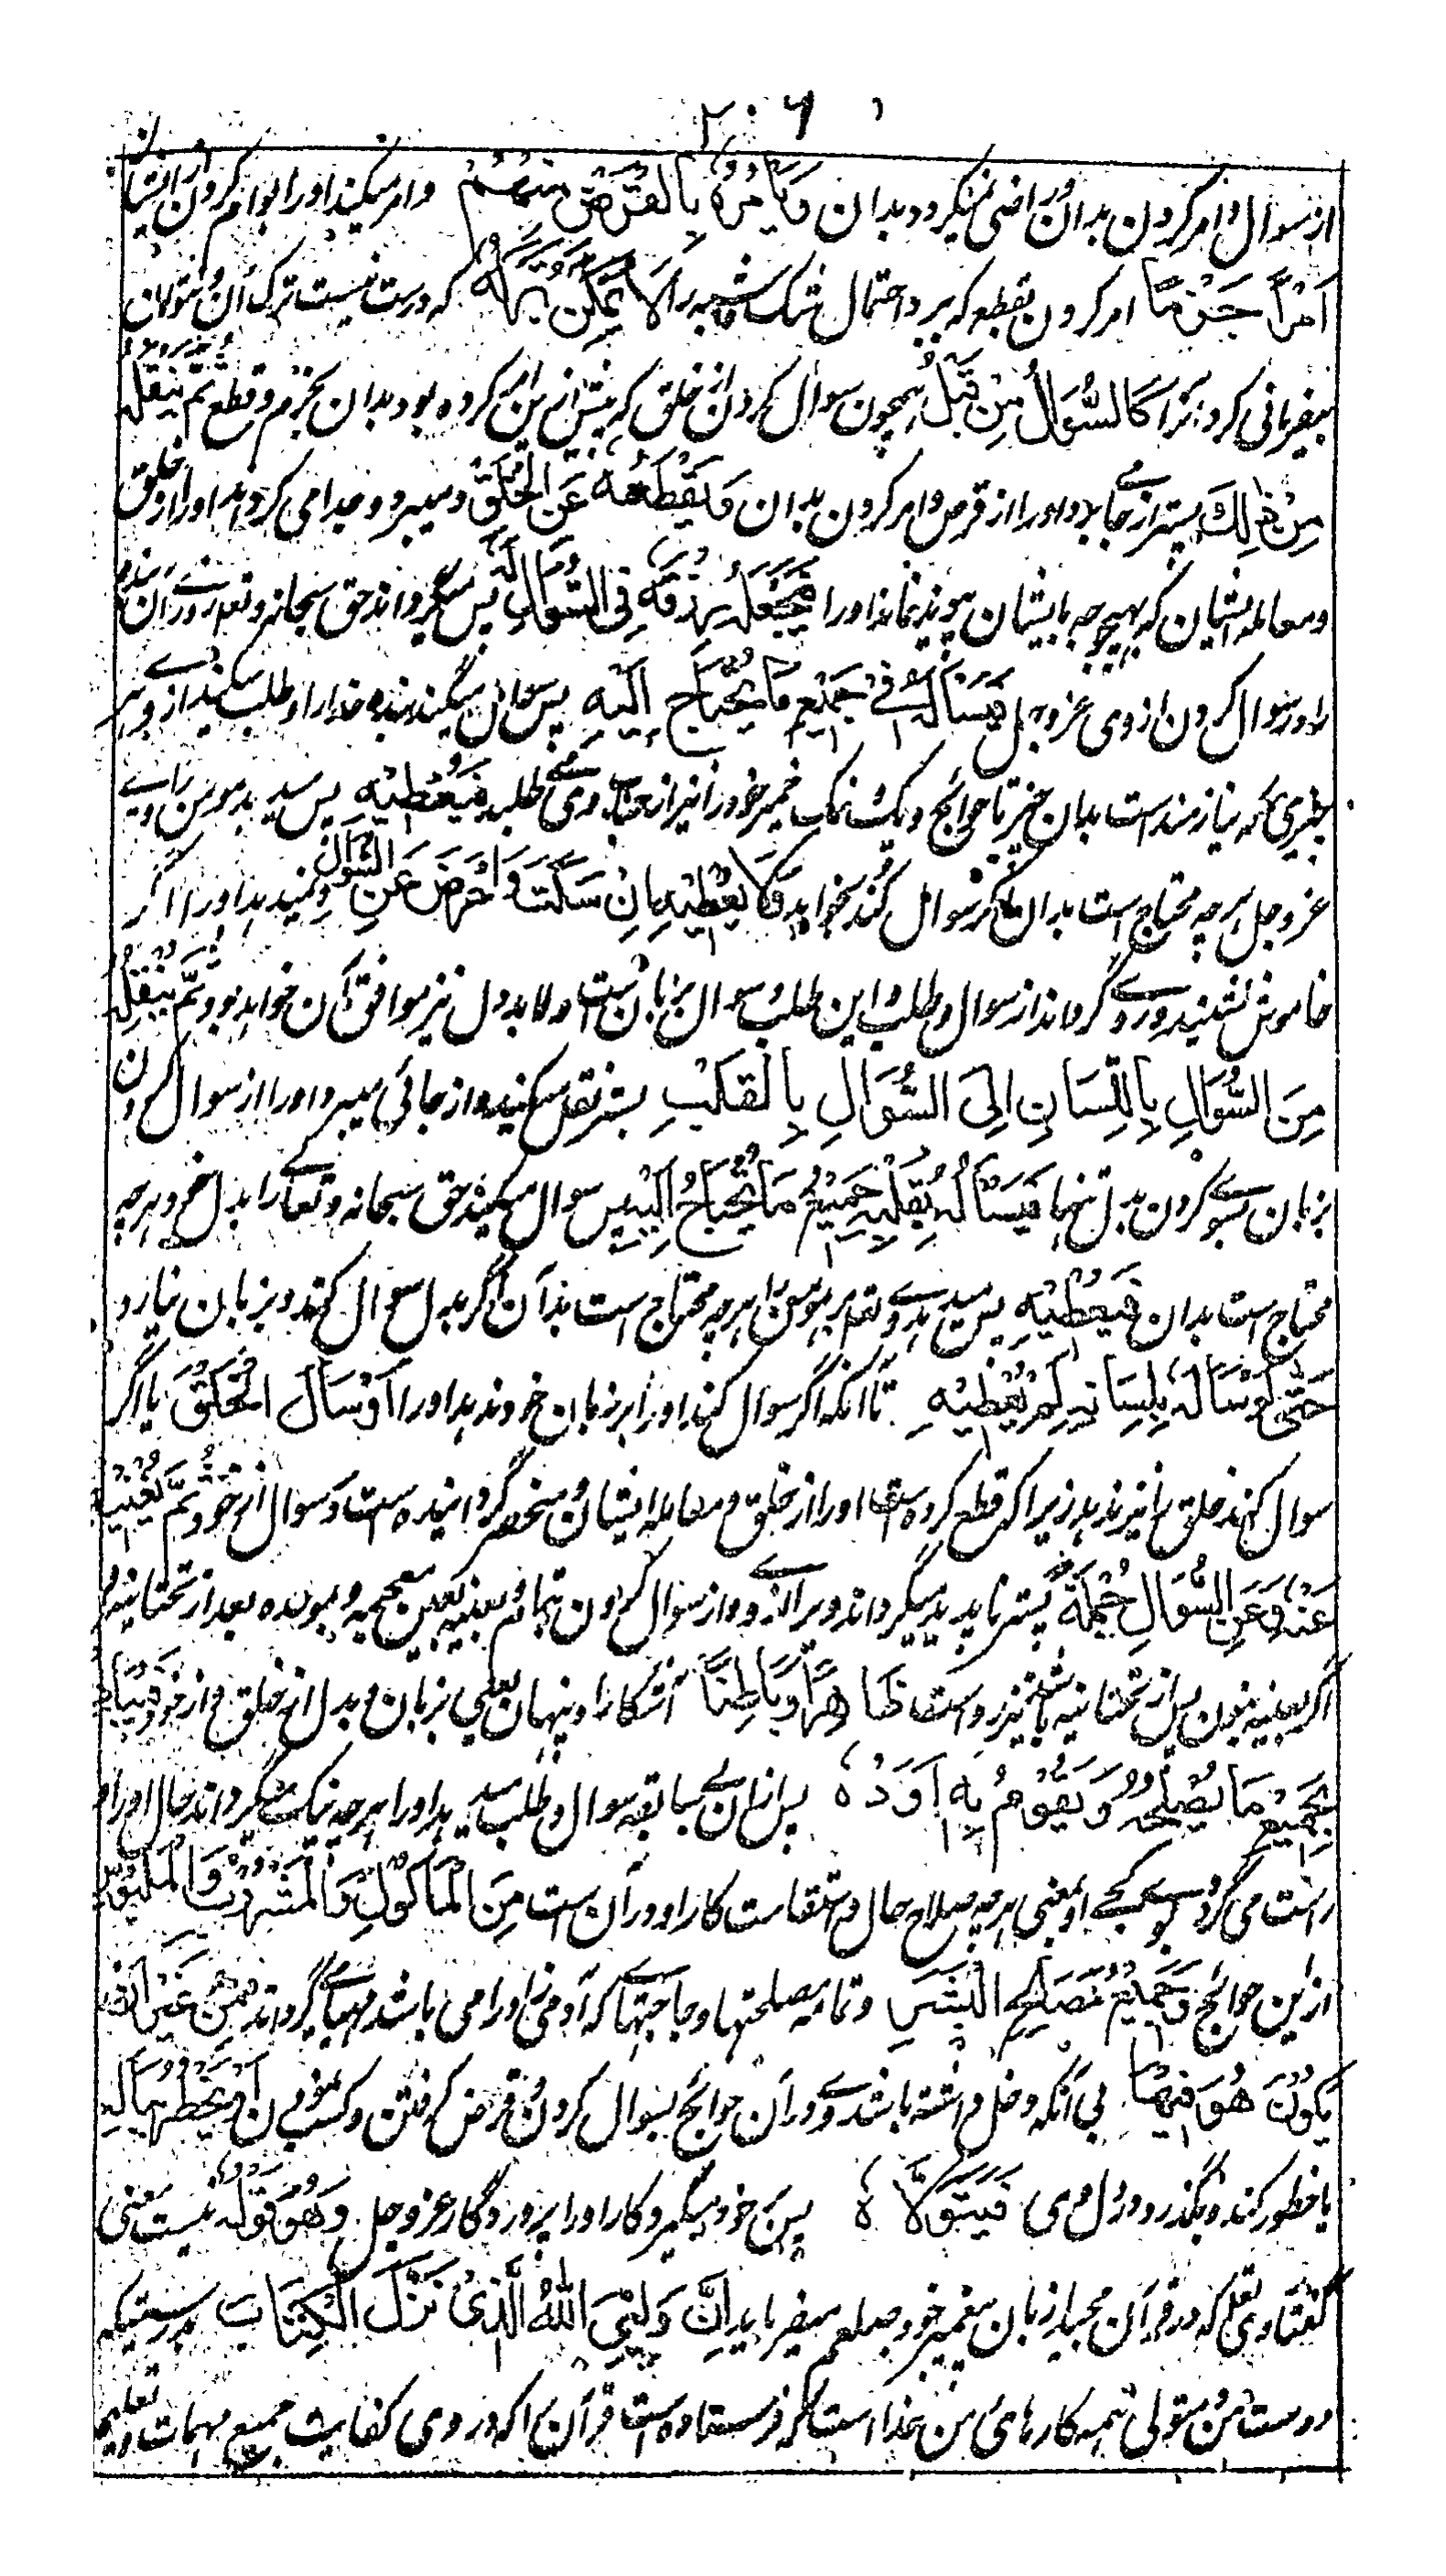 ۲۰۶
از سوال و امر کردن بدان و راضی نمیگردد بدان وَیَأْمُرُهُ بِالْقَرْضِ مِنْهُمْ و امر میکند او را بوام کردن از ایشان
اَمْرًا جَزْمًا امر کردن بقطع که نبرد احتمال ترک و شبه را لَا یُمْکِنُ تَرْکُهُ که درست نیست ترک آن و نتوان
بیفرمانی کرد مر آنرا کَالسُّوَالِ مِنْ قَبْلُ همچون سوال کردن از خلق که پیش ازین امر کرده بود بدان بجزم و قطع ثُمَّ یَنْقُلُهُ
مِنْ ذٰلِکَ پستر از جا برد او را از قرض و امر کردن بدان وَیَقْطَعُهُ عَنِ الْخَلْقِ و میبرد و جدا می گرداند او را از خلق
و معامله ایشان که بهیچ وجه بایشان پیوند نماند او را فَیَجْعَلُ رِزْقَهُ فِی السُّوَالِ لَهُ پس میگرداند حق سبحانه و تعالی روزی آن بنده
را در سوال کردن از وی عز و جل فَیَسْأَلُهُ فِیْ جَمِیْعِ مَا یَحْتَاجُ اِلَیْهِ پس سوال میکند بنده خدا را و طلب میکند از وی هر
چیزی که نیازمند است بدان چیز تا حوائج دیگ و نمک خمیر خود را نیز از جناب وی می طلبد فَیُعْطِیْهِ پس میدهد مومن را وی
عز و جل هر چه محتاج است بدان اگر سوال کند و بخواهد وَلَا یُعْطِیْهِ اِنْ سَکَتَ وَاَعْرَضَ عَنِ السُّوَالِ و نمیدهد او را اگر
خاموش نشیند و روی گرداند از سوال و طلب و این طلب و سوال بزبان ست و لابد دل نیز موافق آن خواهد بود ثُمَّ یَنْقُلُهُ
مِنَ السُّوَالِ بِاللِّسَانِ اِلَی السُّوَالِ بِالْقَلْبِ پستر نقل میکند و از جائی میبرد او را از سوال کردن
بزبان بسوی کردن بدل تنها فَیَسْأَلُهُ بِقَلْبِهِ جَمِیْعَ مَا یَحْتَاجُ اِلَیْهِ پس سوال میکند حق سبحانه و تعالی را بدل خود هر چه
محتاج است بدان فَیُعْطِیْهِ پس میدهد وی تعالی مر مومن را هر چه محتاج است بدان اگر بدل سوال کند و بزبان نیارد
حَتّٰی لَوْ سَأَلَهُ بِلِسَانِهِ لَمْ یُعْطِیْهِ تا آنکه اگر سوال کند او را بزبان خود ندهد او را اَوْ سَأَلَ الْخَلْقَ یا اگر
سوال کند خلق را نیز ندهد زیرا که قطع کرده است او را از خلق و معامله ایشان و منحصر گردانیده ست و سوال از خود ثُمَّ یُغِیْبُهُ
عَنْهُ وَعَنِ السُّوَالِ جُمْلَةً پستر ناپدید میگرداند ویرا از وی و از سوال کردن تمام یغیبه بغین معجمه و موحده بعد از تحتانیه و
اگر یغنیه بنون پس از تحتانیه باشد نیز رو است ظَاهِرًا وَبَاطِنًا آشکارا و پنهان یعنی بزبان و بدل از خلق و از خود
بِجَمِیْعِ مَا یُصْلِحُهُ وَیَقُوْمُ بِهِ اَوَدُهُ پس ازان بی سابقه سوال و طلب میدهد او را هر چه نیک میگرداند حال او را و
راست می گردد بوی کجی او یعنی هر چه صلاح حال و استقامت کار او در آن است مِنَ الْمَأْکُوْلِ وَالْمَشْرُوْبِ وَالْمَلْبُوْسِ
از این حوائج وَجَمِیْعِ مَصَالِحِ الْبَشَرِ و تمامه مصلحتها و حاجتهای که آدمی را می باشد مهیا می گرداند مِنْ غَیْرِ اَنْ
یَکُوْنَ هُوَ فِیْهَا بی آنکه دخل داشته باشد وی در آن حوائج بسوال کردن و قرض گرفتن و کسب نمودن اَوْ یَخْطُرُ بِبَالِهِ
یا خطور کند و بگذرد در دل وی فَیَتَوَلَّاهُ پس بر خود میگیرد کار او را پروردگار عز و جل وَهُوَ قَوْلُهُ نیست معنی
گفته وی تعالی که در قرآن مجید از زبان پیغمبر خود صلعم میفرماید اِنَّ وَلِیِّیَ اللّٰهُ الَّذِیْ نَزَّلَ الْکِتَابَ بدرستیکه
دوست من و متولی همه کارهای من خدا است که فرستاده است قرآن را که در وی کفایت جمیع مهمات و تعلیم